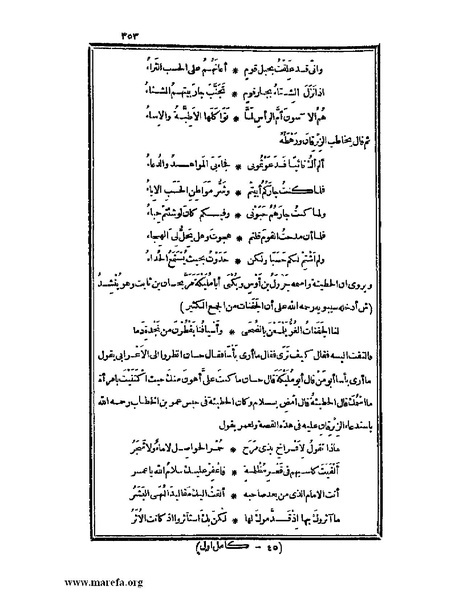 ٣٥٣
وانى قد علقت بحبل قوم * أعانهم على الحسب الثراء
اذا نزل الشتاء بجار قوم * تجنب جار بيتهم الشتاء
هم الآسون أم الرأس لما * تواكلها الأطبة والإساء
ثم قال يخاطب الزبرقان ورهطه
ألم أك نائيا فدعوتمونى * فجاء بى المواعد والدعاء
فلما كنت جاركم أبيتم * وشر مواطن الحسب الإباء
ولما كنت جارهم حبونى * وفيكم كان لو شئتم حباء
فلما أن مدحت القوم قلتم * هجوت وهل يحل لى الهجاء
ولم أشتم لكم حسبا ولكن * حدوت بحيث يستمع الحداء
ويروى ان الحطيئة واسمه جرول بن أوس ويكنى أبا مليكة مر بحسان بن ثابت وهو ينشد
(ش أدخله سيبويه رحمه الله على أن الجفنات من الجمع الكثير)
لنا الجفنات الغر يلمعن بالضحى * وأسيافنا يقطرن من نجدة دما
فالتفت اليه فقال كيف ترى فقال ما أرى بأسا فقال حسان انظروا الى الأعرابى يقول
ما أرى بأسا أبو من قال أبو مليكة قال حسان ما كنت على أهون منك حيث اكتنيت بامرأة
ما اسمك قال الحطيئة قال امض بسلام وكان الحطيئة فى حبس عمر بن الخطاب رحمه الله
باستدعاء الزبرقان عليه فى هذه القصة ولعمر يقول
ماذا تقول لأفراخ بذى مرخ * حمر الحواصل لا ماء ولا شجر
ألقيت كاسبهم فى قعر مظلمة * فاغفر عليك سلام الله يا عمر
أنت الامام الذى من بعد صاحبه * ألقت اليك مقاليد النهى البشر
ما آثروك بها اذ قدموك لها * لكن بك استأثروا اذ كانت الأثر
(٤٥ - كامل اول)
www.marefa.org